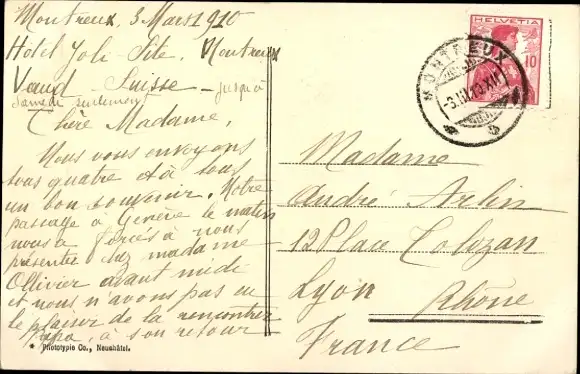 Montreux, 3 Mars 1910
Hotel Joli-Site, Montreux
Vaud-Suisse - jusqu'à
samedi seulement
Chère Madame,
Nous vous envoyons
tous quatre et à tous
un bon souvenir. Notre
passage à Genève le matin
nous a forcés à nous
présenter chez madame
Ollivier avant midi
et nous n'avons pas eu
le plaisir de la rencontrer
papa, à son retour
* Phototypie Co., Neuchâtel.
HELVETIA
10
MONTREUX
Madame
André Arlin
12 Place Tolozan
Lyon
Rhône
France